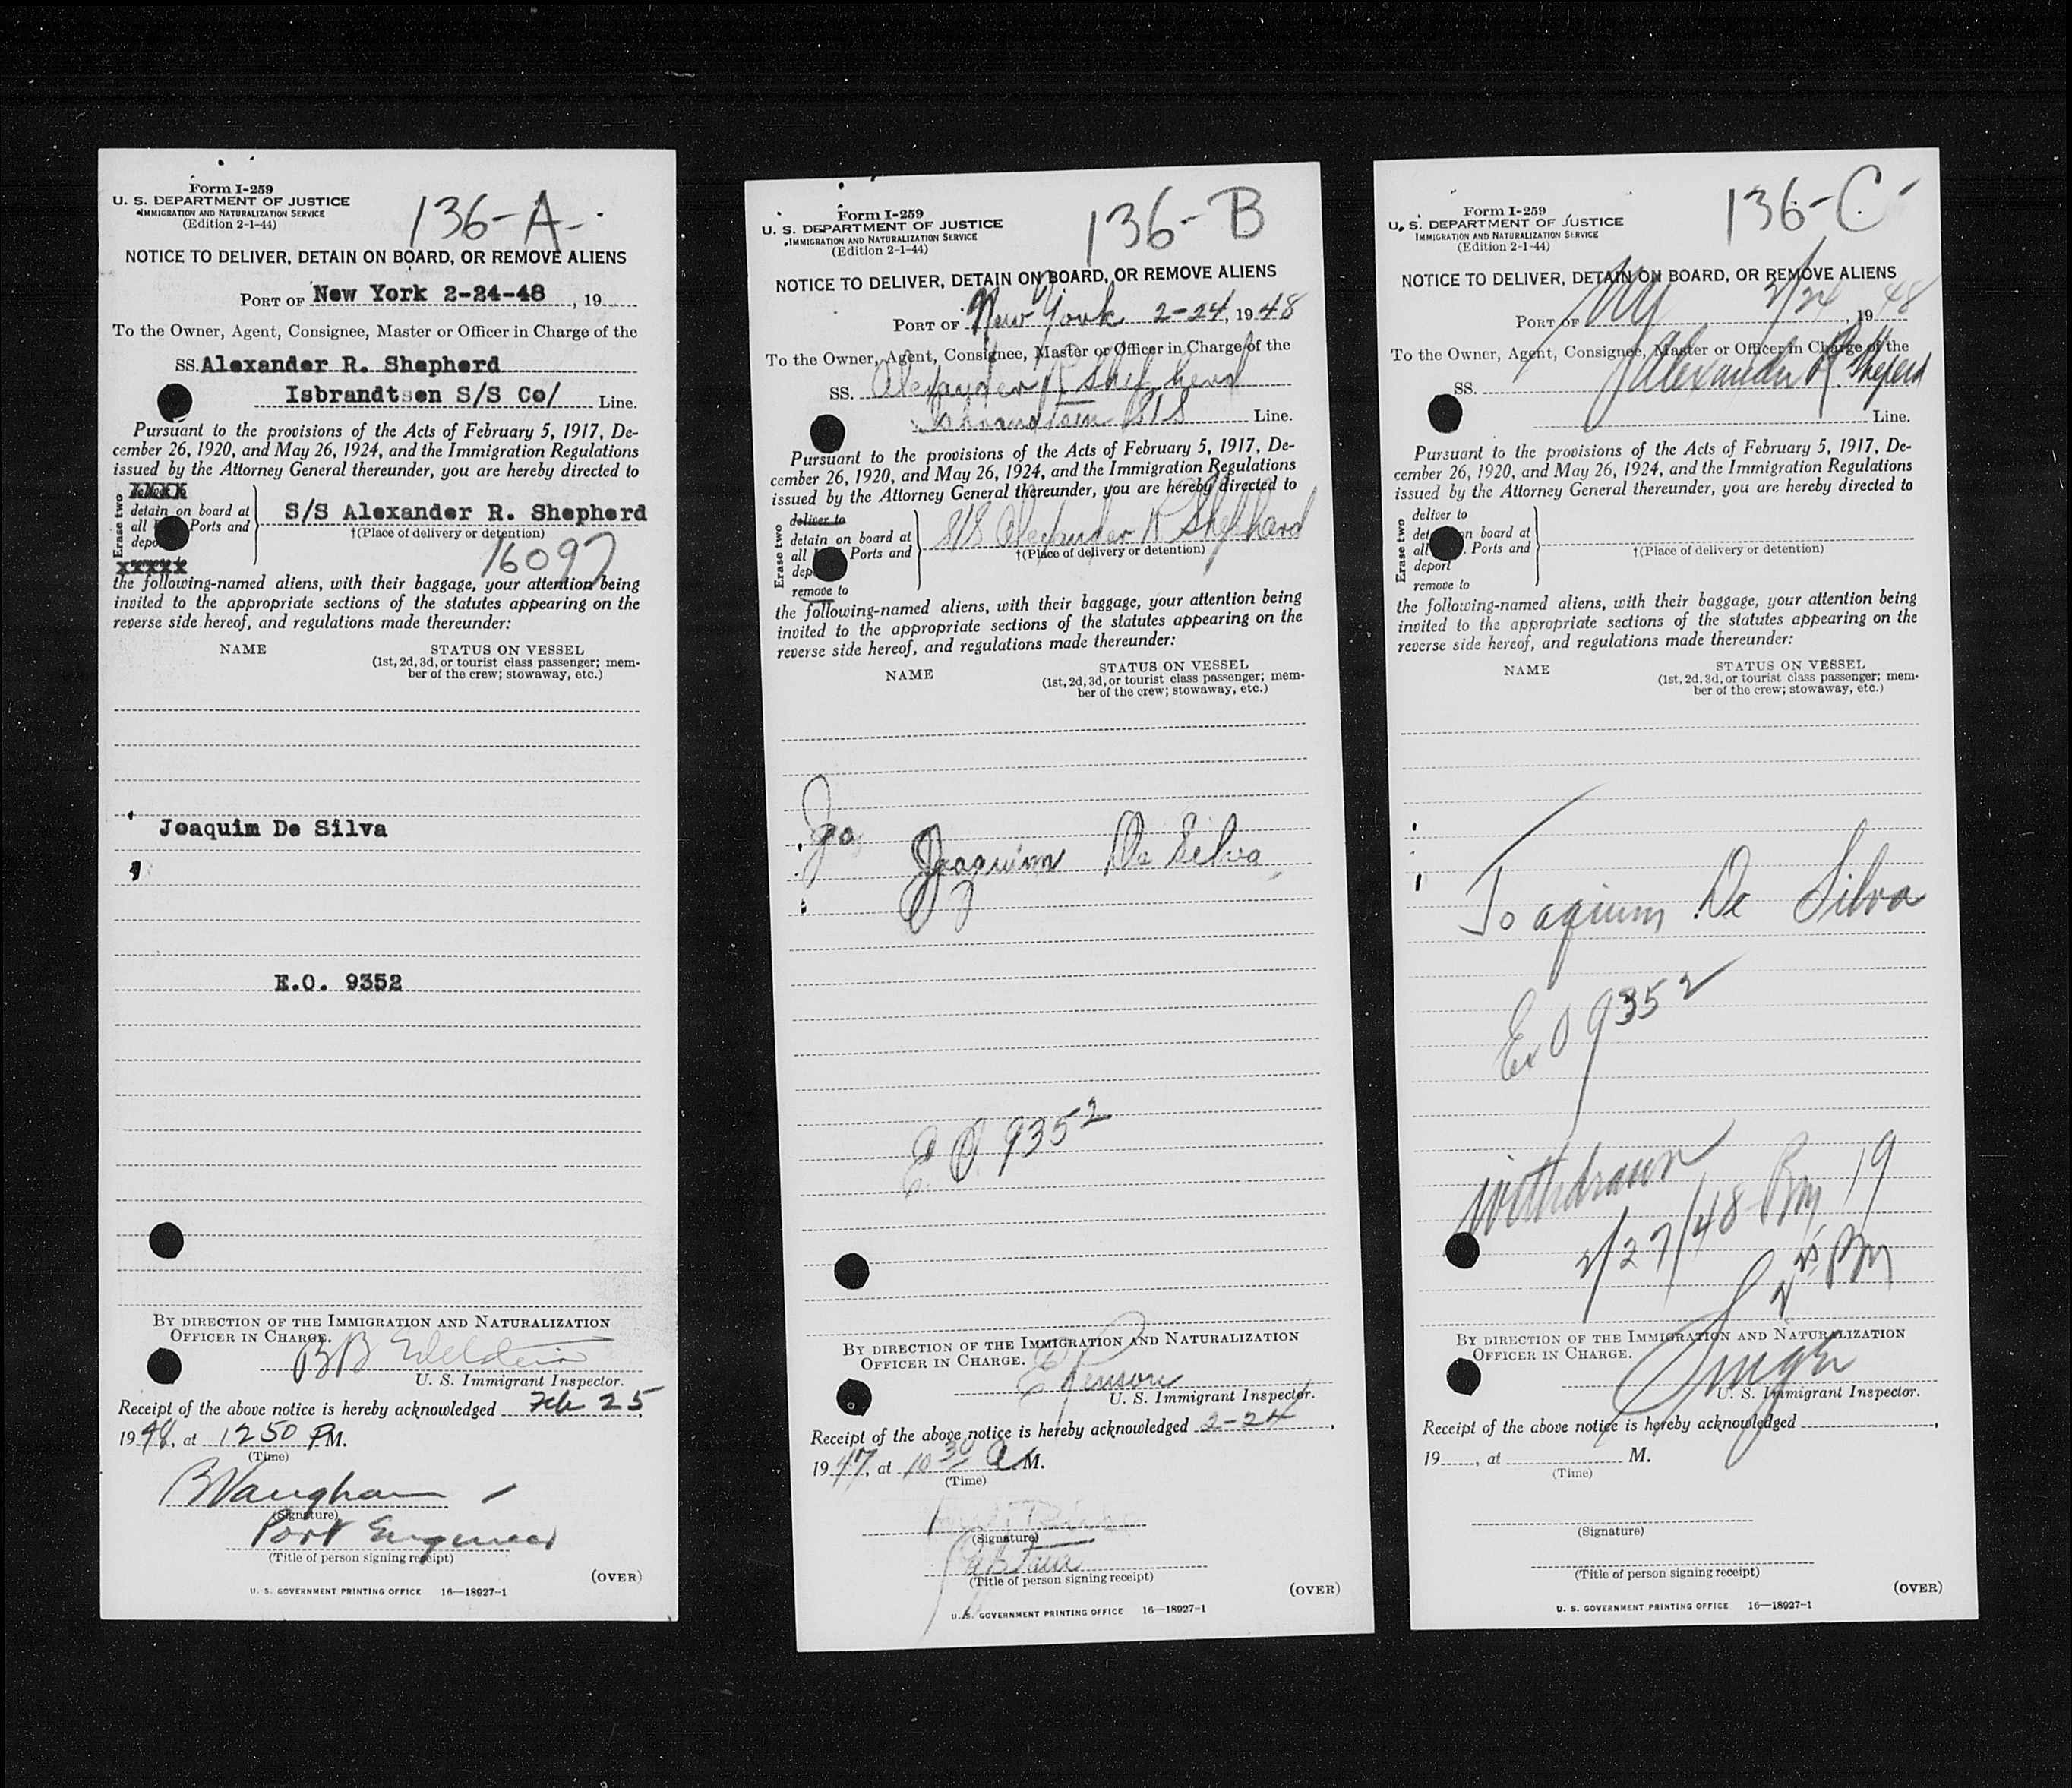 Form I-259
U. S. DEPARTMENT OF JUSTICE
IMMIGRATION AND NATURALIZATION SERVICE
(Edition 2-1-44)
136-A-
NOTICE TO DELIVER, DETAIN ON BOARD, OR REMOVE ALIENS
PORT OF New York 2-24-48, 19
To the Owner, Agent, Consignee, Master or Officer in Charge of the
SS. Alexander R. Shepherd
Isbrandtsen S/S Co/ Line.
Pursuant to the provisions of the Acts of February 5, 1917, De-
cember 26, 1920, and May 26, 1924, and the Immigration Regulations
issued by the Attorney General thereunder, you are hereby directed to
Erase two
xxxxx
detain on board at
all Ports and
depo
xxxxx
S/S Alexander R. Shepherd
†(Place of delivery or detention)
16097
the following-named aliens, with their baggage, your attention being
invited to the appropriate sections of the statutes appearing on the
reverse side hereof, and regulations made thereunder:
NAME
STATUS ON VESSEL
(1st, 2d, 3d, or tourist class passenger; mem-
ber of the crew; stowaway, etc.)
Joaquim De Silva
E.O. 9352
BY DIRECTION OF THE IMMIGRATION AND NATURALIZATION
OFFICER IN CHARGE.
BB Edelstein
U. S. Immigrant Inspector.
Receipt of the above notice is hereby acknowledged Feb 25,
1948, at 1250 PM.
(Time)
BVaughan
(Signature)
Port Engineer
(Title of person signing receipt)
(OVER)
U. S. GOVERNMENT PRINTING OFFICE 16—18927-1
Form I-259
U. S. DEPARTMENT OF JUSTICE
IMMIGRATION AND NATURALIZATION SERVICE
(Edition 2-1-44)
136-B
NOTICE TO DELIVER, DETAIN ON BOARD, OR REMOVE ALIENS
PORT OF New York 2-24, 1948
To the Owner, Agent, Consignee, Master or Officer in Charge of the
SS. Alexander R Shepherd
Isbrandtsen S/S Line.
Pursuant to the provisions of the Acts of February 5, 1917, De-
cember 26, 1920, and May 26, 1924, and the Immigration Regulations
issued by the Attorney General thereunder, you are hereby directed to
Erase two
deliver to
detain on board at
all Ports and
dep
remove to
S/S Alexander R Shephard
†(Place of delivery or detention)
the following-named aliens, with their baggage, your attention being
invited to the appropriate sections of the statutes appearing on the
reverse side hereof, and regulations made thereunder:
NAME
STATUS ON VESSEL
(1st, 2d, 3d, or tourist class passenger; mem-
ber of the crew; stowaway, etc.)
Joa
Joaquim De Silva
E.O. 9352
BY DIRECTION OF THE IMMIGRATION AND NATURALIZATION
OFFICER IN CHARGE.
U. S. Immigrant Inspector.
Receipt of the above notice is hereby acknowledged 2-24,
1947, at 10 30 A M.
(Time)
(Signature)
Captain
(Title of person signing receipt)
(OVER)
U. S. GOVERNMENT PRINTING OFFICE 16—18927-1
Form I-259
U. S. DEPARTMENT OF JUSTICE
IMMIGRATION AND NATURALIZATION SERVICE
(Edition 2-1-44)
136-C
NOTICE TO DELIVER, DETAIN ON BOARD, OR REMOVE ALIENS
PORT OF NY 2/24, 1948
To the Owner, Agent, Consignee, Master or Officer in Charge of the
SS. Alexander R. Sheperd
Line.
Pursuant to the provisions of the Acts of February 5, 1917, De-
cember 26, 1920, and May 26, 1924, and the Immigration Regulations
issued by the Attorney General thereunder, you are hereby directed to
Erase two
deliver to
det on board at
all Ports and
deport
remove to
†(Place of delivery or detention)
the following-named aliens, with their baggage, your attention being
invited to the appropriate sections of the statutes appearing on the
reverse side hereof, and regulations made thereunder:
NAME
STATUS ON VESSEL
(1st, 2d, 3d, or tourist class passenger; mem-
ber of the crew; stowaway, etc.)
Joaqium De Silva
Ex O 9352
Withdrawn
2/27/48
BY DIRECTION OF THE IMMIGRATION AND NATURALIZATION
OFFICER IN CHARGE.
U. S. Immigrant Inspector.
Receipt of the above notice is hereby acknowledged ,
19 , at M.
(Time)
(Signature)
(Title of person signing receipt)
(OVER)
U. S. GOVERNMENT PRINTING OFFICE 16—18927-1